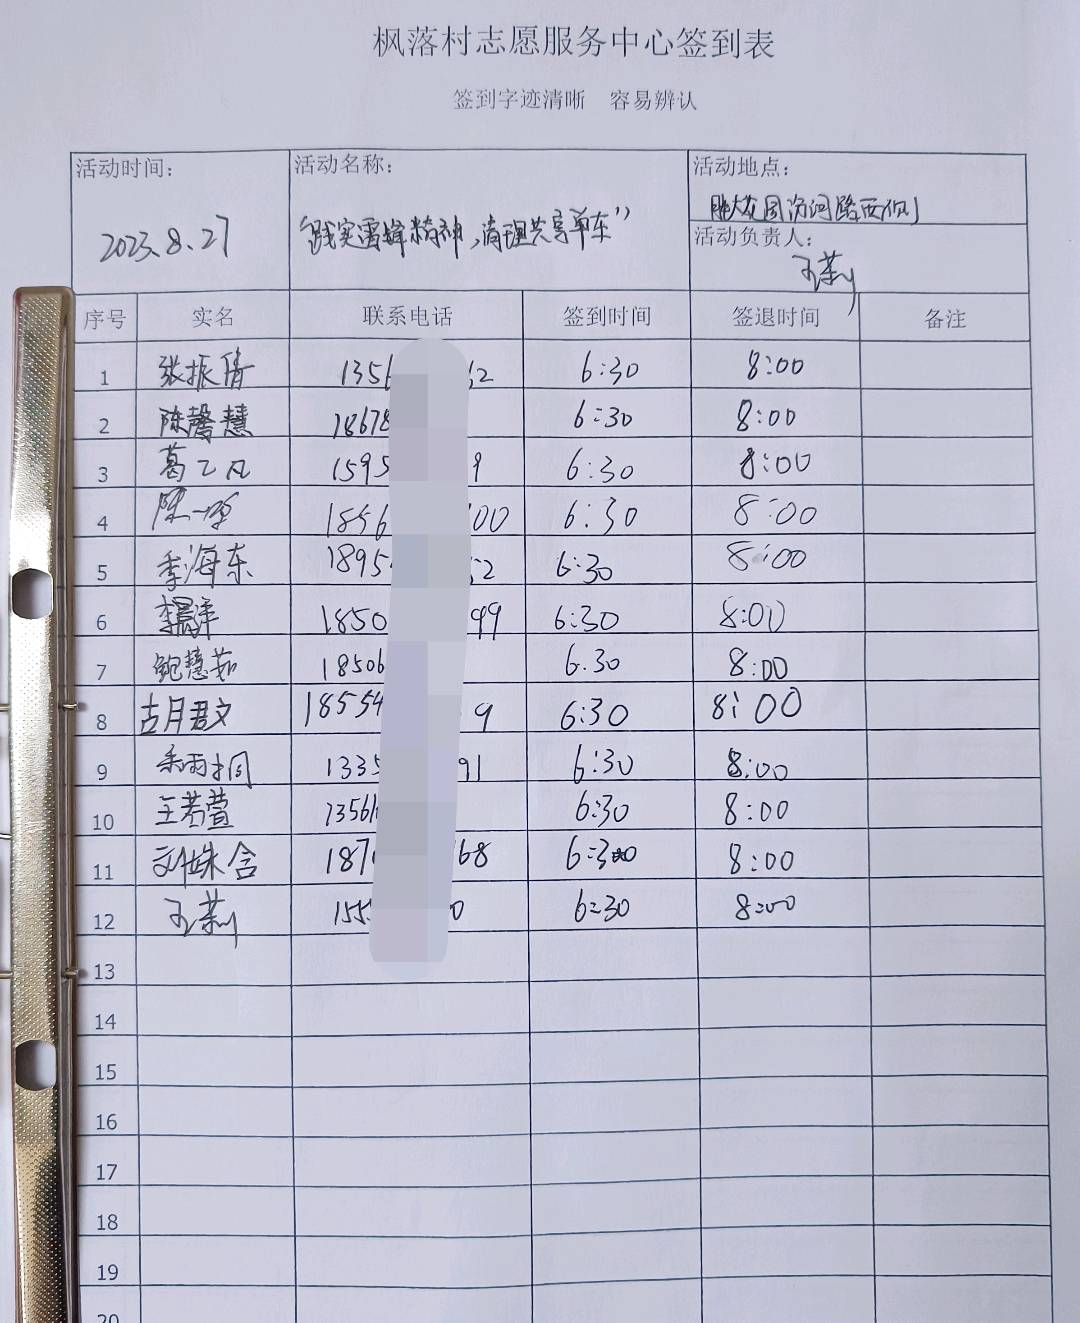 枫落村志愿服务中心签到表
签到字迹清晰 容易辨认
活动时间： 活动名称： 活动地点：
2023.8.27 “践实雷锋精神，清理共享单车” 花园汾河路西侧
活动负责人：
王莉
序号 实名 联系电话 签到时间 签退时间 备注
1 张振倩 1356 32 6:30 8:00
2 陈馨慧 18678 6:30 8:00
3 葛乙凡 1595 9 6:30 8:00
4 陈一 1856 00 6:30 8:00
5 季海东 1895 52 6:30 8:00
6 李 1850 99 6:30 8:00
7 鲍慧茹 18506 6.30 8:00
8 古月君文 18554 9 6:30 8:00
9 雨桐 1335 91 6:30 8:00
10 王若萱 1356 6:30 8:00
11 刘姝含 187 68 6:30 8:00
12 王莉 155 0 6:30 8:00
13
14
15
16
17
18
19
20